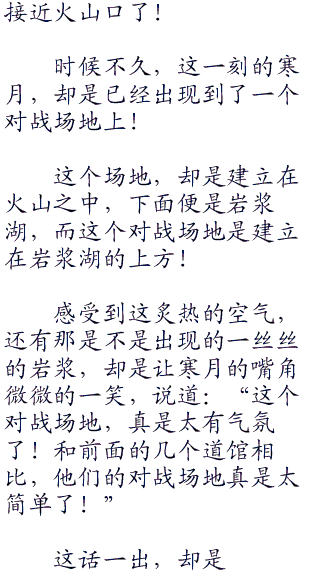 接近火山口了！
时候不久，这一刻的寒
月，却是已经出现到了一个
对战场地上！
这个场地，却是建立在
火山之中，下面便是岩浆
湖，而这个对战场地是建立
在岩浆湖的上方！
感受到这炙热的空气，
还有那是不是出现的一丝丝
的岩浆，却是让寒月的嘴角
微微的一笑，说道：“这个
对战场地，真是太有气氛
了！和前面的几个道馆相
比，他们的对战场地真是太
简单了！”
这话一出，却是